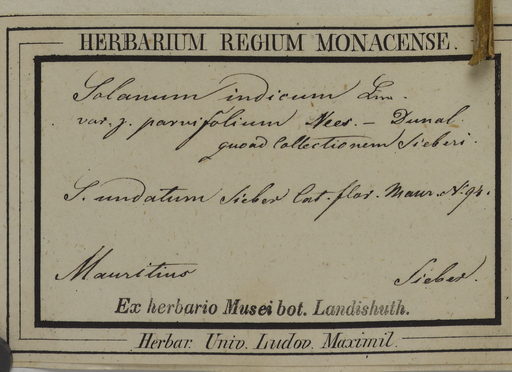 HERBARIUM REGIUM MONACENSE.
Solanum indicum Lin.
var. γ. parvifolium Nees. – Dunal
quoad Collectionem Sieberi.
S. undatum Sieber Cat. flor. Maur. N. 94.
Mauritius Sieber.
Ex herbario Musei bot. Landishuth.
Herbar. Univ. Ludov. Maximil.